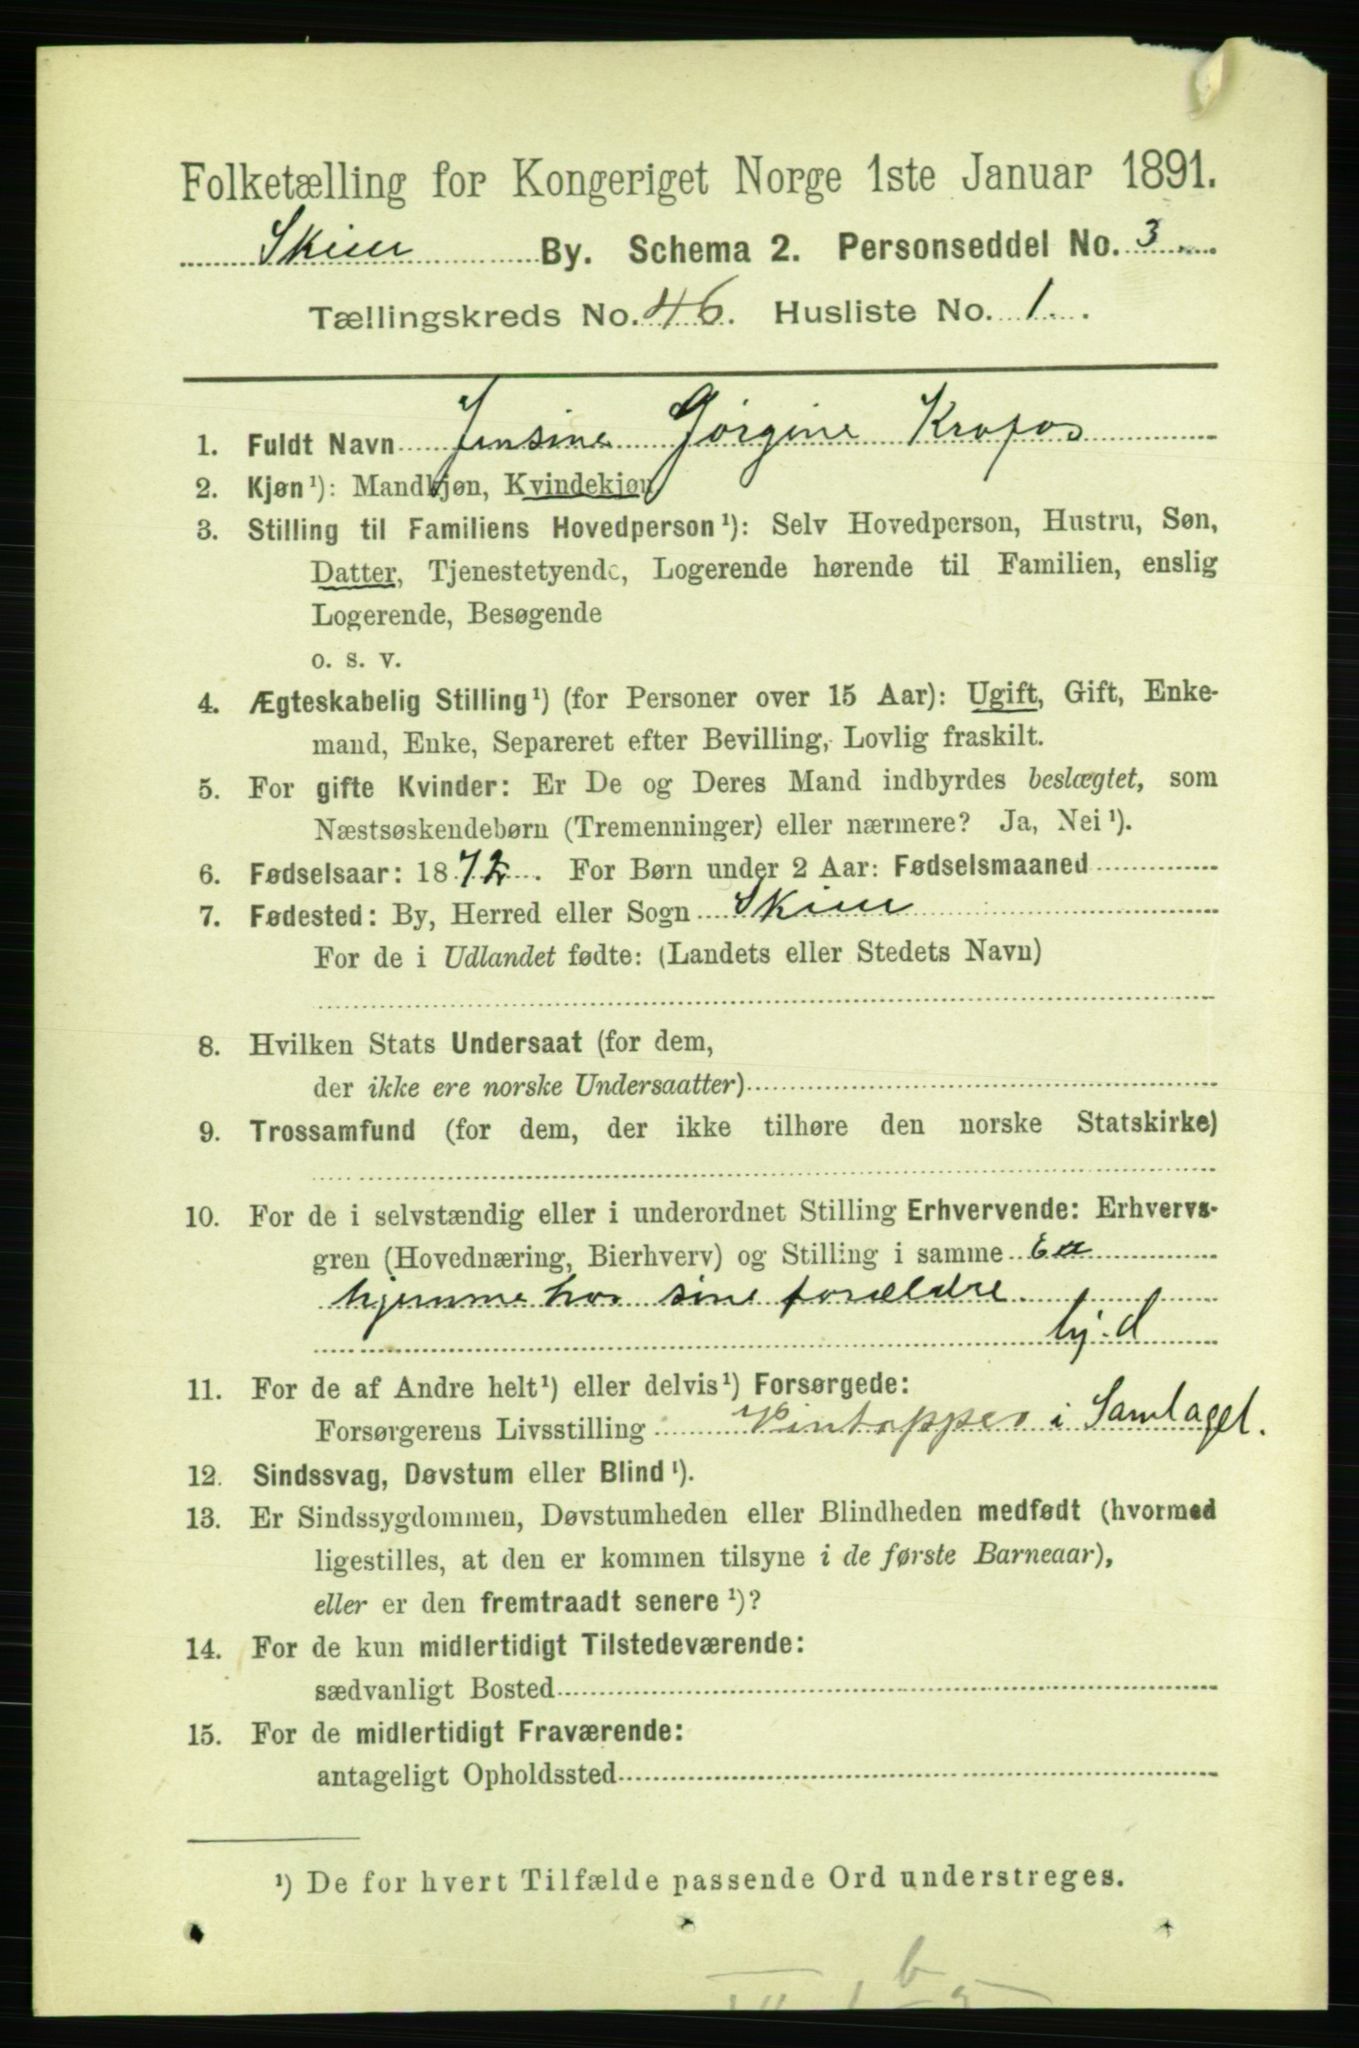 Folketælling for Kongeriget Norge 1ste Januar 1891.
Skien By. Schema 2. Personseddel No. 3
Tællingskreds No. 46. Husliste No. 1.
1. Fuldt Navn Jensine Görgine Krofos
2. Kjøn¹): Mandkjøn, Kvindekjøn
3. Stilling til Familiens Hovedperson¹): Selv Hovedperson, Hustru, Søn,
Datter, Tjenestetyende, Logerende hørende til Familien, enslig
Logerende, Besøgende
o. s. v.
4. Ægteskabelig Stilling¹) (for Personer over 15 Aar): Ugift, Gift, Enke-
mand, Enke, Separeret efter Bevilling, Lovlig fraskilt.
5. For gifte Kvinder: Er De og Deres Mand indbyrdes beslægtet, som
Næstsøskendebørn (Tremenninger) eller nærmere? Ja, Nei¹).
6. Fødselsaar: 1872. For Børn under 2 Aar: Fødselsmaaned
7. Fødested: By, Herred eller Sogn Skien
For de i Udlandet fødte: (Landets eller Stedets Navn)
8. Hvilken Stats Undersaat (for dem,
der ikke ere norske Undersaatter)
9. Trossamfund (for dem, der ikke tilhøre den norske Statskirke)
10. For de i selvstændig eller i underordnet Stilling Erhvervende: Erhvervs-
gren (Hovednæring, Bierhverv) og Stilling i samme Er
hjemme hos sine forældre
hj. d
11. For de af Andre helt¹) eller delvis¹) Forsørgede:
Forsørgerens Livsstilling Vintapper i Samlaget.
12. Sindssvag, Døvstum eller Blind¹).
13. Er Sindssygdommen, Døvstumheden eller Blindheden medfødt (hvormed
ligestilles, at den er kommen tilsyne i de første Barneaar),
eller er den fremtraadt senere¹)?
14. For de kun midlertidigt Tilstedeværende:
sædvanligt Bosted
15. For de midlertidigt Fraværende:
antageligt Opholdssted
¹) De for hvert Tilfælde passende Ord understreges.